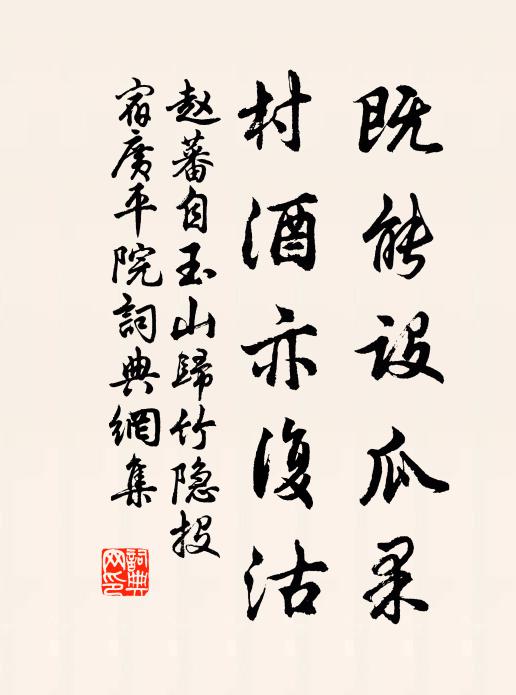 既能设瓜果
村酒亦復沽
赵蕃自玉山歸竹隐投
宿廣平院詞典網集
詞典
网印